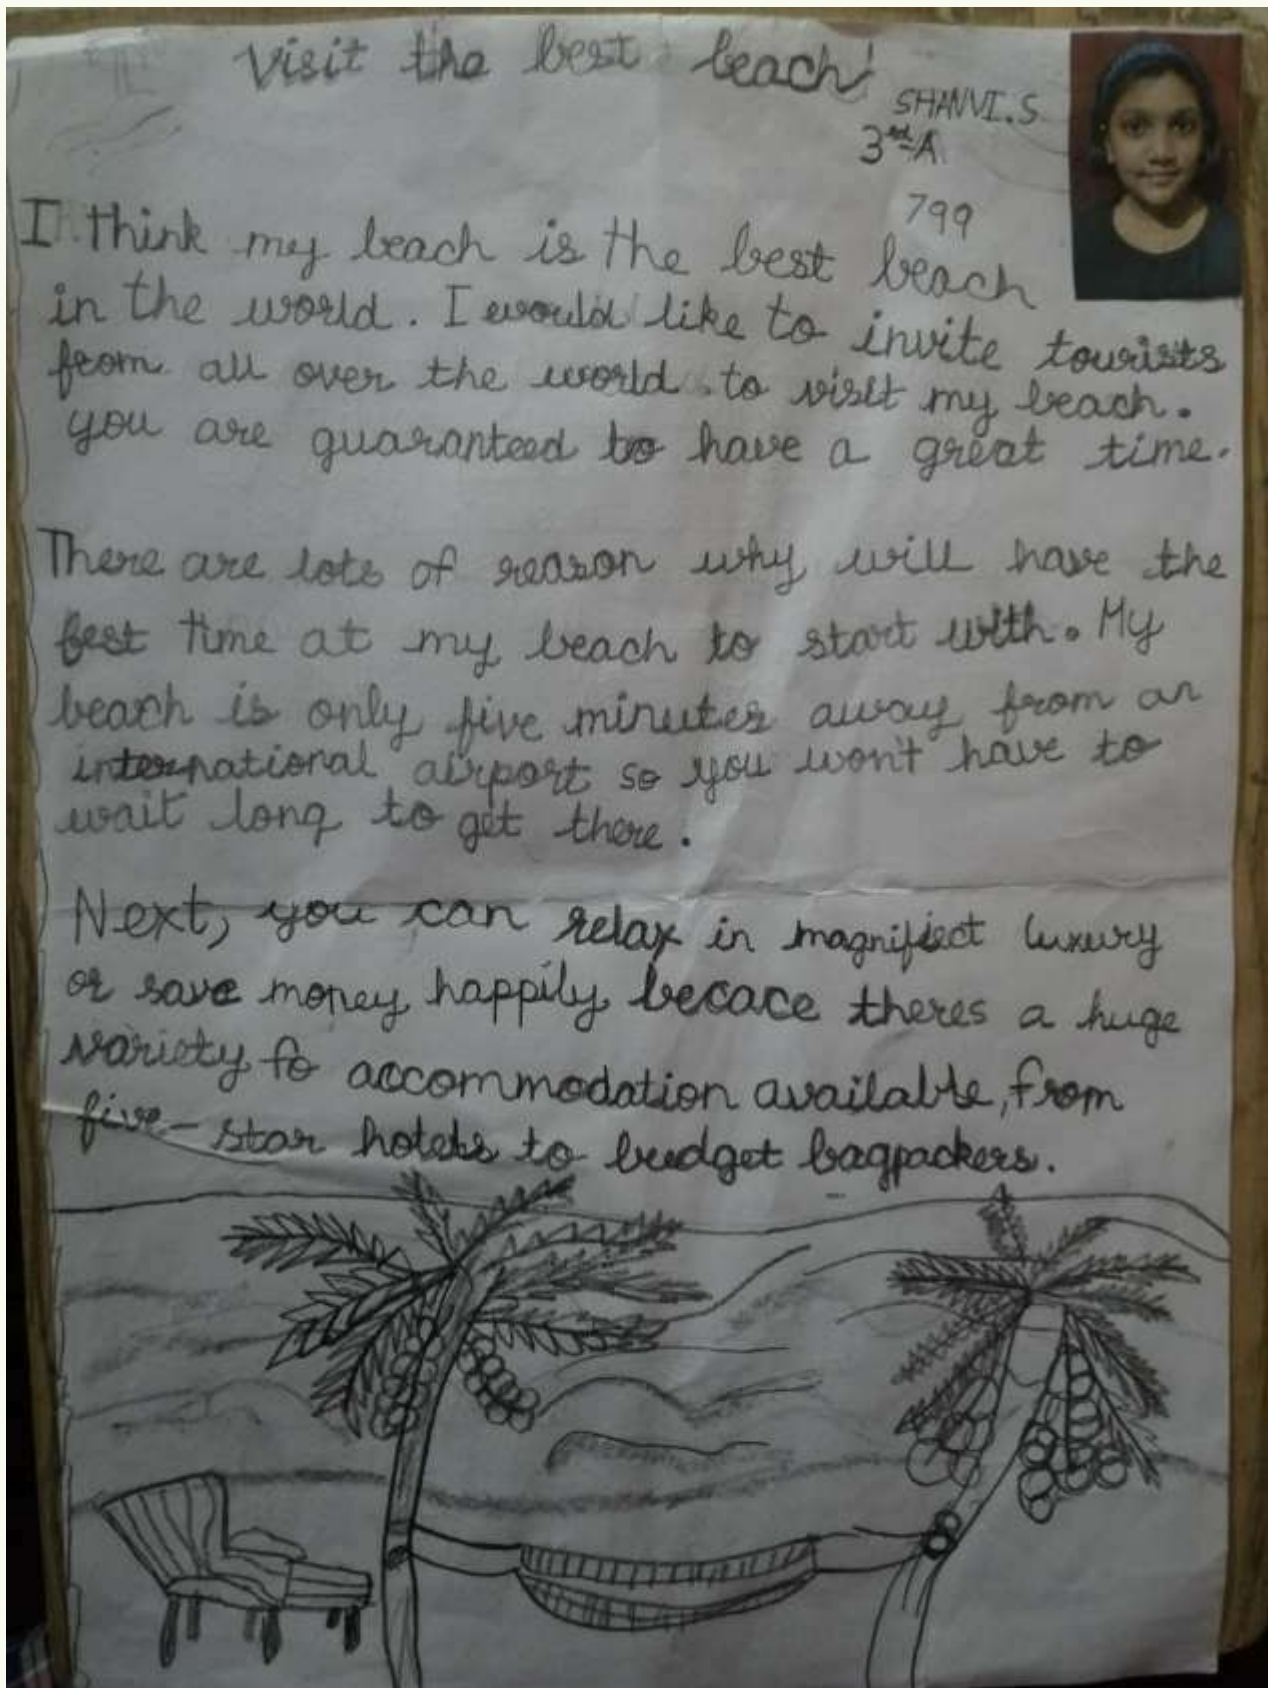 Visit the best beach!
SHANVI.S
3rd A
799
I think my beach is the best beach
in the world. I would like to invite tourists
from all over the world to visit my beach.
you are guaranteed to have a great time.
There are lots of reason why will have the
best time at my beach to start with. My
beach is only five minutes away from an
international airport so you won't have to
wait long to get there.
Next, you can relax in magnifiect luxury
or save money happily becace theres a huge
variety fo accommodation available, from
five-star hotels to budget bagpackers.